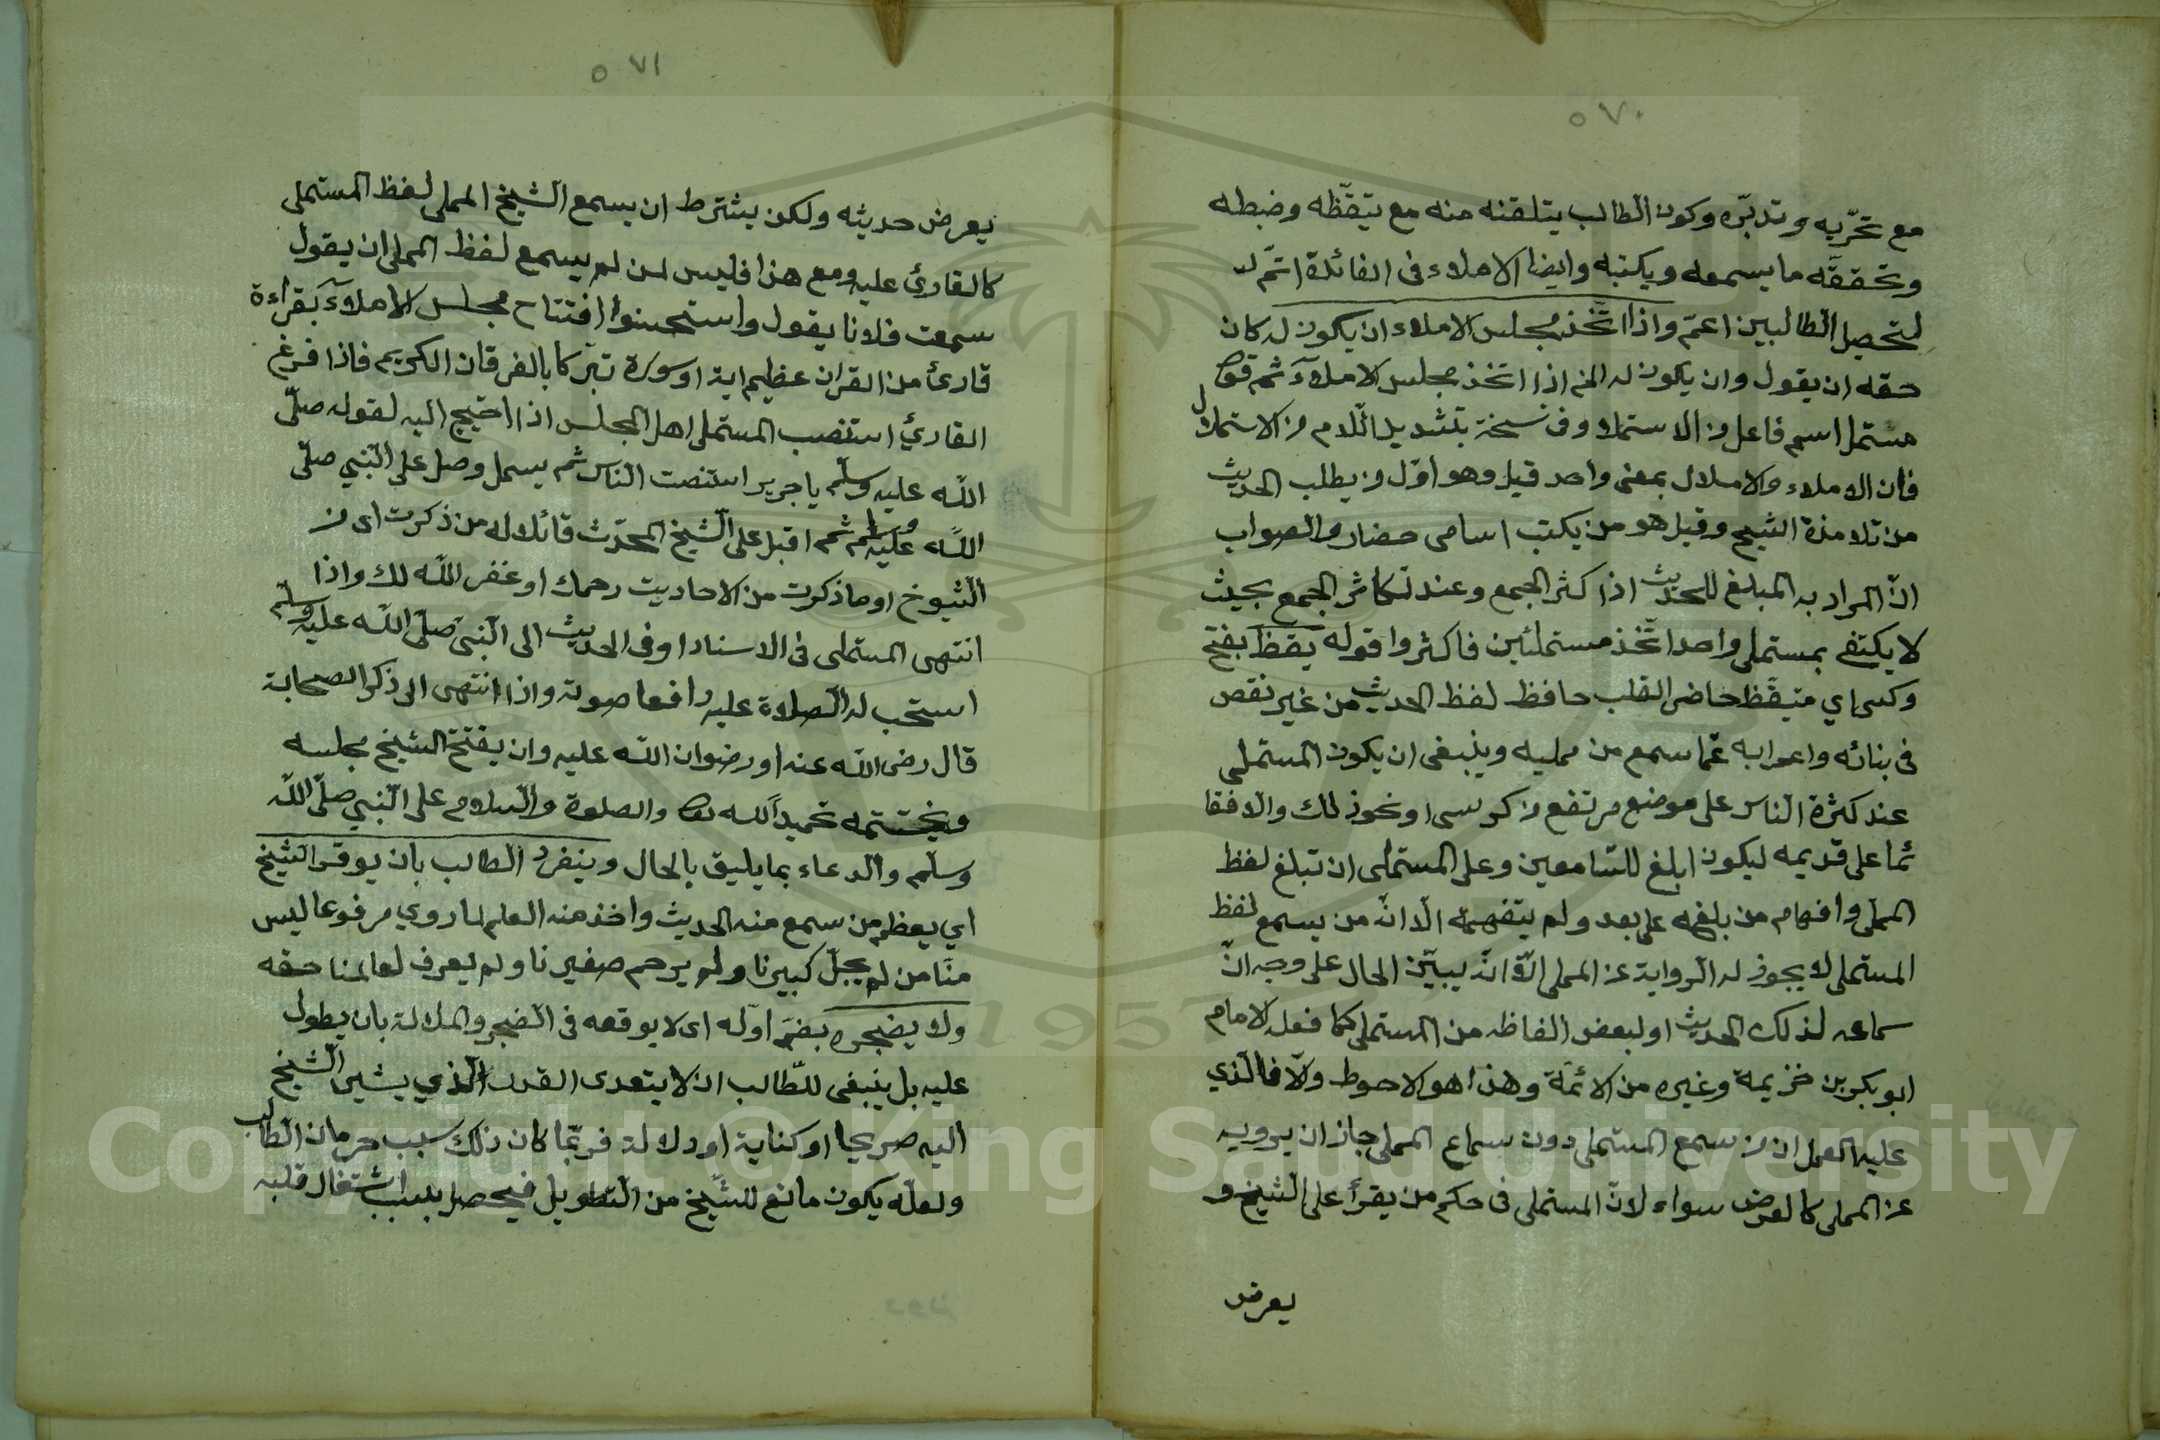 ٥٧٠
مع تحرّيه وتدبّره وكون الطالب يتلقنه منه مع تيقّظه وضبطه
وتحققه ما يسمعه ويكتبه وايضا الاملاء فى الفائدة اتمّ لد
لتحصيل الطالبين اعمّ واذا اتّخذ مجلس الاملاء ان يكون له كان
حقه ان يقول وان يكون له الخ اذا اتخذ مجلس الاملاء ثم قوله
مستمل اسم فاعل من الاستملاء وفى نسخة بتشديد اللام من الاستملال
فان الاملاء والاملال بمعنى واحد قيل وهو اوّل من يطلب الحديث
من تلامذة الشيخ وقيل هو من يكتب اسامى حضار والصواب
انّ المراد به المبلغ للحديث اذا كثر الجمع وعند تكاثر الجمع بحيث
لا يكتفى بمستملى واحد اتّخذ مستملئين فاكثر وا قوله يقظ بفتح
وكسر اي متيقّظ حاضر القلب حافظ لفظ الحديث من غير نقص
فى بنائه واعرابه عمّا سمع من ممليه وينبغى ان يكون المستملى
عند كثرة الناس على موضع مرتفع من كرسى او نحو ذلك والا فقا
ئما على قديمه ليكون ابلغ للسّامعين وعلى المستملى ان تبلغ لفظ
المملى وافهام من بلغه على بعد ولم يتفهمه الّا انّه من يسمع لفظ
المستملى لا يجوز له الرواية عن المملى الّا انّه يبيّن الحال على وجه انّ
سماعه لذلك الحديث او لبعض الفاظه من المستملى كما فعله الامام
ابو بكر بن خزيمة وغيره من الائمّة وهذا هو الاحوط والّا فالّذي
عليه العمل ان من سمع المستملى دون سماع المملى جاز ان يرويه
عن المملى كالعرض سواء لانّ المستملى فى حكم من يقرأ على الشيخ و
يعرض
٥٧١
يعرض حديثه ولكن يشترط ان يسمع الشيخ المملى لفظ المستملى
كالقارئ عليه ومع هذا فليس لمن لم يسمع لفظ المملى ان يقول
سمعت فلانا يقول واستحسنوا افتتاح مجلس الاملاء بقراءة
قارئ من القران عظيم اية او سورة تبرّكا بالفرقان الكريم فاذا فرغ
القارئ استنصب المستملى اهل المجلس اذا احتيج اليه لقوله صلّى
اللّه عليه وسلّم يا جرير استنصت الناس ثم يسمل وصل على النّبي صلّى
اللّه عليه وسلم ثم اقبل على الشيخ المحدّث قائلا له من ذكرت اى من
الشيوخ او ما ذكرت من الاحاديث رحمك او غفر اللّه لك واذا
انتهى المستملى فى الاسناد او فى الحديث الى النّبى صلّى اللّه عليه وسلم
استحب له الصلاة عليه رافعا صوته واذا انتهى الى ذكر الصحابة
قال رضى اللّه عنه او رضوان اللّه عليه وان يفتتح الشيخ مجلسه
ويختتمه تحميد اللّه تعا والصلوة والسلام على النّبي صلّى اللّه
وسلّم والدعاء بما يليق بالحال وينفرد الطالب بان يوقر الشيخ
اي يعظم من سمع منه الحديث واخذ منه العلم لما روي مرفوعا ليس
منّا من لم يجلّ كبيرنا ولم يرحم صغيرنا ولم يعرف لعالمنا حقه
ولا يضجره بضمّ اوّله اى لا يوقعه فى الضجر والملالة بان يطول
عليه بل ينبغى للطّالب ان لا يتعدى القدر الّذي يشير الشيخ
اليه صريحا او كناية او دلالة فربّما كان ذلك سبب حرمان الطالب
ولعلّه يكون مانع للشّيخ من التطويل فيحصل بسبب اشتغال قلبه
Copyright © King Saud University
1957